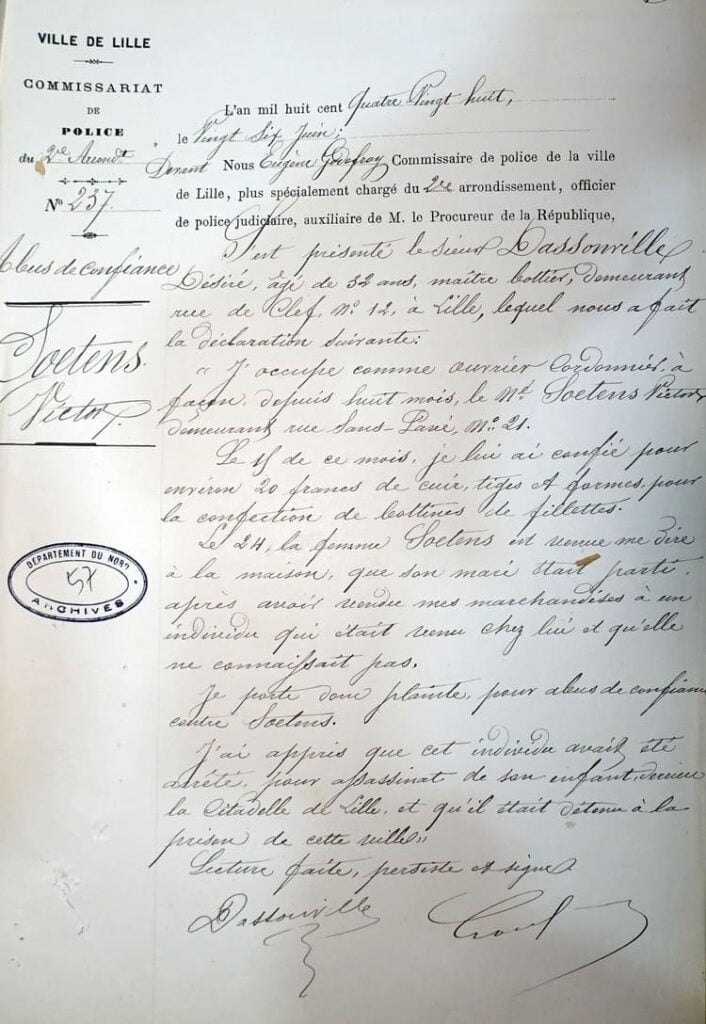 VILLE DE LILLE
COMMISSARIAT
DE
POLICE
du 2e Arrondt
No 237.
Abus de confiance
Soetens
Victor
DEPARTEMENT DU NORD
57
ARCHIVES
L'an mil huit cent quatre Vingt huit,
le Vingt Six Juin;
Devant Nous Eugène Godefroy Commissaire de police de la ville
de Lille, plus spécialement chargé du 2e arrondissement, officier
de police judiciaire, auxiliaire de M. le Procureur de la République,
S'est présenté le sieur Dassonville
Désiré, âgé de 32 ans, maître bottier, demeurant
rue de Clef, No 12, à Lille, lequel nous a fait
la déclaration suivante:
" J'occupe comme ouvrier cordonnier, à
façon, depuis huit mois, le Né Soetens Victor
demeurant rue Sans-Pavé, No 21.
Le 15 de ce mois, je lui ai confié pour
environ 20 francs de cuir, tiges et formes, pour
la confection de bottines de fillettes.
Le 24, la femme Soetens est venue me dire
à la maison, que son mari était parti,
après avoir vendu mes marchandises à un
individu qui était venu chez lui et qu'elle
ne connaissait pas.
Je porte donc plainte, pour abus de confiance
contre Soetens.
J'ai appris que cet individu avait été
arrêté, pour assassinat de son enfant, derrière
la Citadelle de Lille, et qu'il était détenu à la
prison de cette ville"
Lecture faite, persiste et signe.
Dassonville